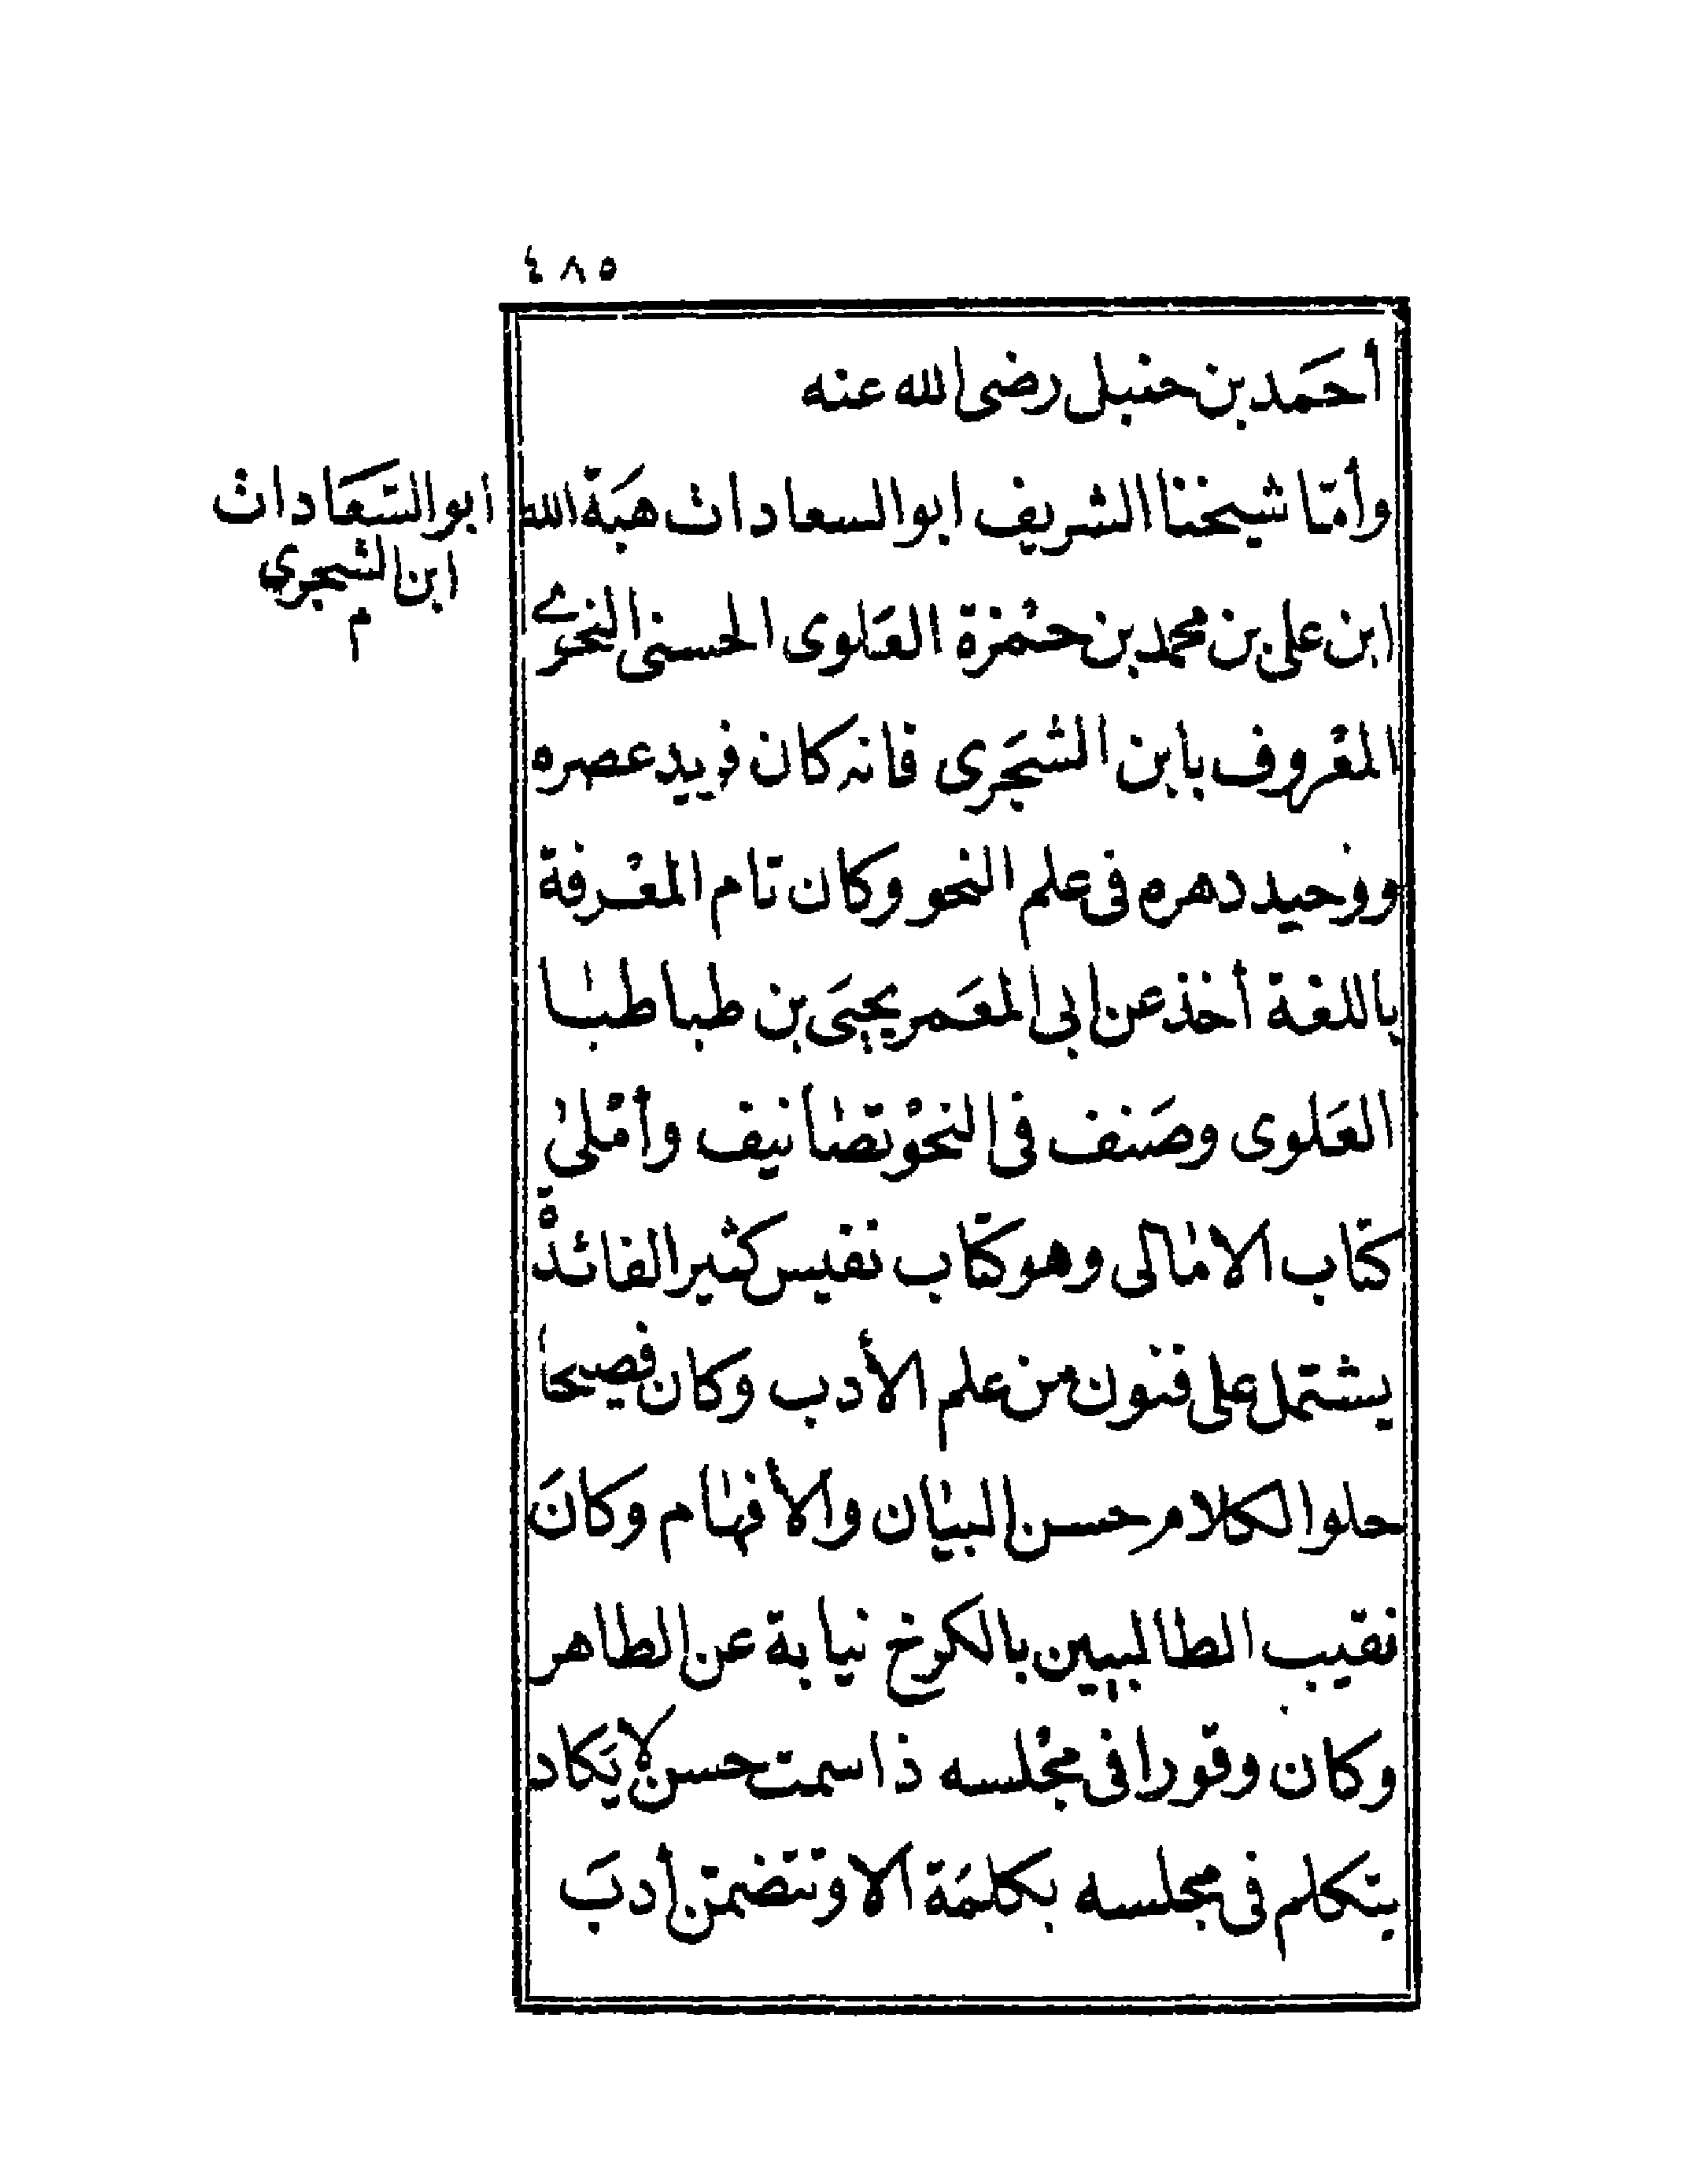 ٤٨٥
أحَمد بن حنبل رضى الله عنه
وأمّا شيخنا الشريف ابو السعادات هبَة الله
ابو السَّعَادات
ابن الشجري
م
ابن على بن محمد بن حمْزة العَلوى الحسنى النحوے
المعْروف بابن الشجَرى فانه كان فريد عصره
ووحيد دهره فى علم النحو وكان تام المعْرفة
باللغة أخذ عن ابى المعَمر يحيَى بن طباطبا
العَلوى وصَنف فى النحْو تصانيف وأمْلىٰ
كتاب الامالى وهو كتاب نفيس كثير الفائدة
يشتمل على فنون من علم الأدب وكان فصيحا
حلو الكلام حسن البيان والافهام وكانَ
نقيب الطالبيين بالكرخ نيابة عن الطاهر
وكان وقورا فى مجْلسه ذا سمت حسن لا يَكاد
يتكلم فى مجلسه بكلمَة الا وتتضمن أدبَ